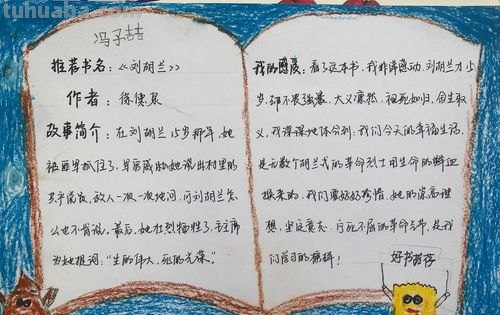 tuhuabc.com
冯子喆
推荐书名：《刘胡兰》
作者：徐德泉
故事简介：在刘胡兰15岁那年，她
被匪军抓住了，军官威胁她说出村里的
共产党员，敌人一次一次地问，可刘胡兰怎
么也不肯说。最后，她壮烈牺牲了，毛主席
为她题词："生的伟大，死的光荣。"
我的感受：看了这本书，我非常感动，刘胡兰才15
岁，却不畏强暴，大义凛然，视死如归，舍生取
义，我深深地体会到：我们今天的幸福生活，
是无数个胡兰式的革命烈士用生命的鲜血
换来的，我们要好好珍惜，她的崇高理
想，坚定意志，宁死不屈的革命气节，是我
们学习的榜样！
好书推荐